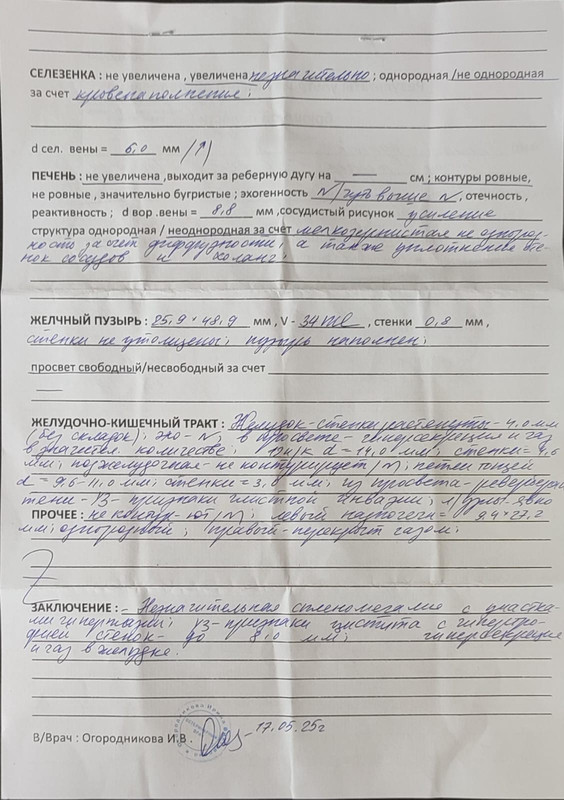 СЕЛЕЗЕНКА : не увеличена , увеличена незначительно ; однородная /не однородная
за счет кровенаполнения ;
d сел. вены = 6,0 мм /↑/
ПЕЧЕНЬ : не увеличена ,выходит за реберную дугу на — см ; контуры ровные,
не ровные , значительно бугристые ; эхогенность N/чуть выше N, отечность ,
реактивность ; d вор .вены = 8,8 мм ,сосудистый рисунок усиление
структура однородная / неоднородная за счет мелкозернистая не однород-
ность за счет диффузности; а также уплотнение сте-
нок сосудов и холанг;
ЖЕЛЧНЫЙ ПУЗЫРЬ : 25,9 × 48,9 мм , V - 34 ml , стенки 0,8 мм ,
стенки не утолщены; пузырь наполнен;
просвет свободный/несвободный за счет
—
ЖЕЛУДОЧНО-КИШЕЧНЫЙ ТРАКТ : Желудок - стенки растянуты - 4,0 мм
(без складок); эхо - N; в просвете - гиперсекреция и газ
в значител. количестве; 12п/к d = 14,01 мм; стенки = 4,6
мм; поджелудочная - не контурирует /N/; петли тощей
d = 9,6 - 11,0 мм; стенки = 3,8 мм; из просвета -
УЗ - признаки глистной инвазии; л/узлы явно
ПРОЧЕЕ : не контур-ют /N/; левый надпочечн = 9,4 × 27,2
мм; однородный; правый - перекрыт газом;
ЗАКЛЮЧЕНИЕ : - Незначительная спленомегалия с участка-
ми гиперплазии; УЗ - признаки цистита с гипертро-
фией стенок - до 8,0 мм; гиперсекреция
и газ в желудке.
В/Врач : Огородникова И.В . 17.05.25г